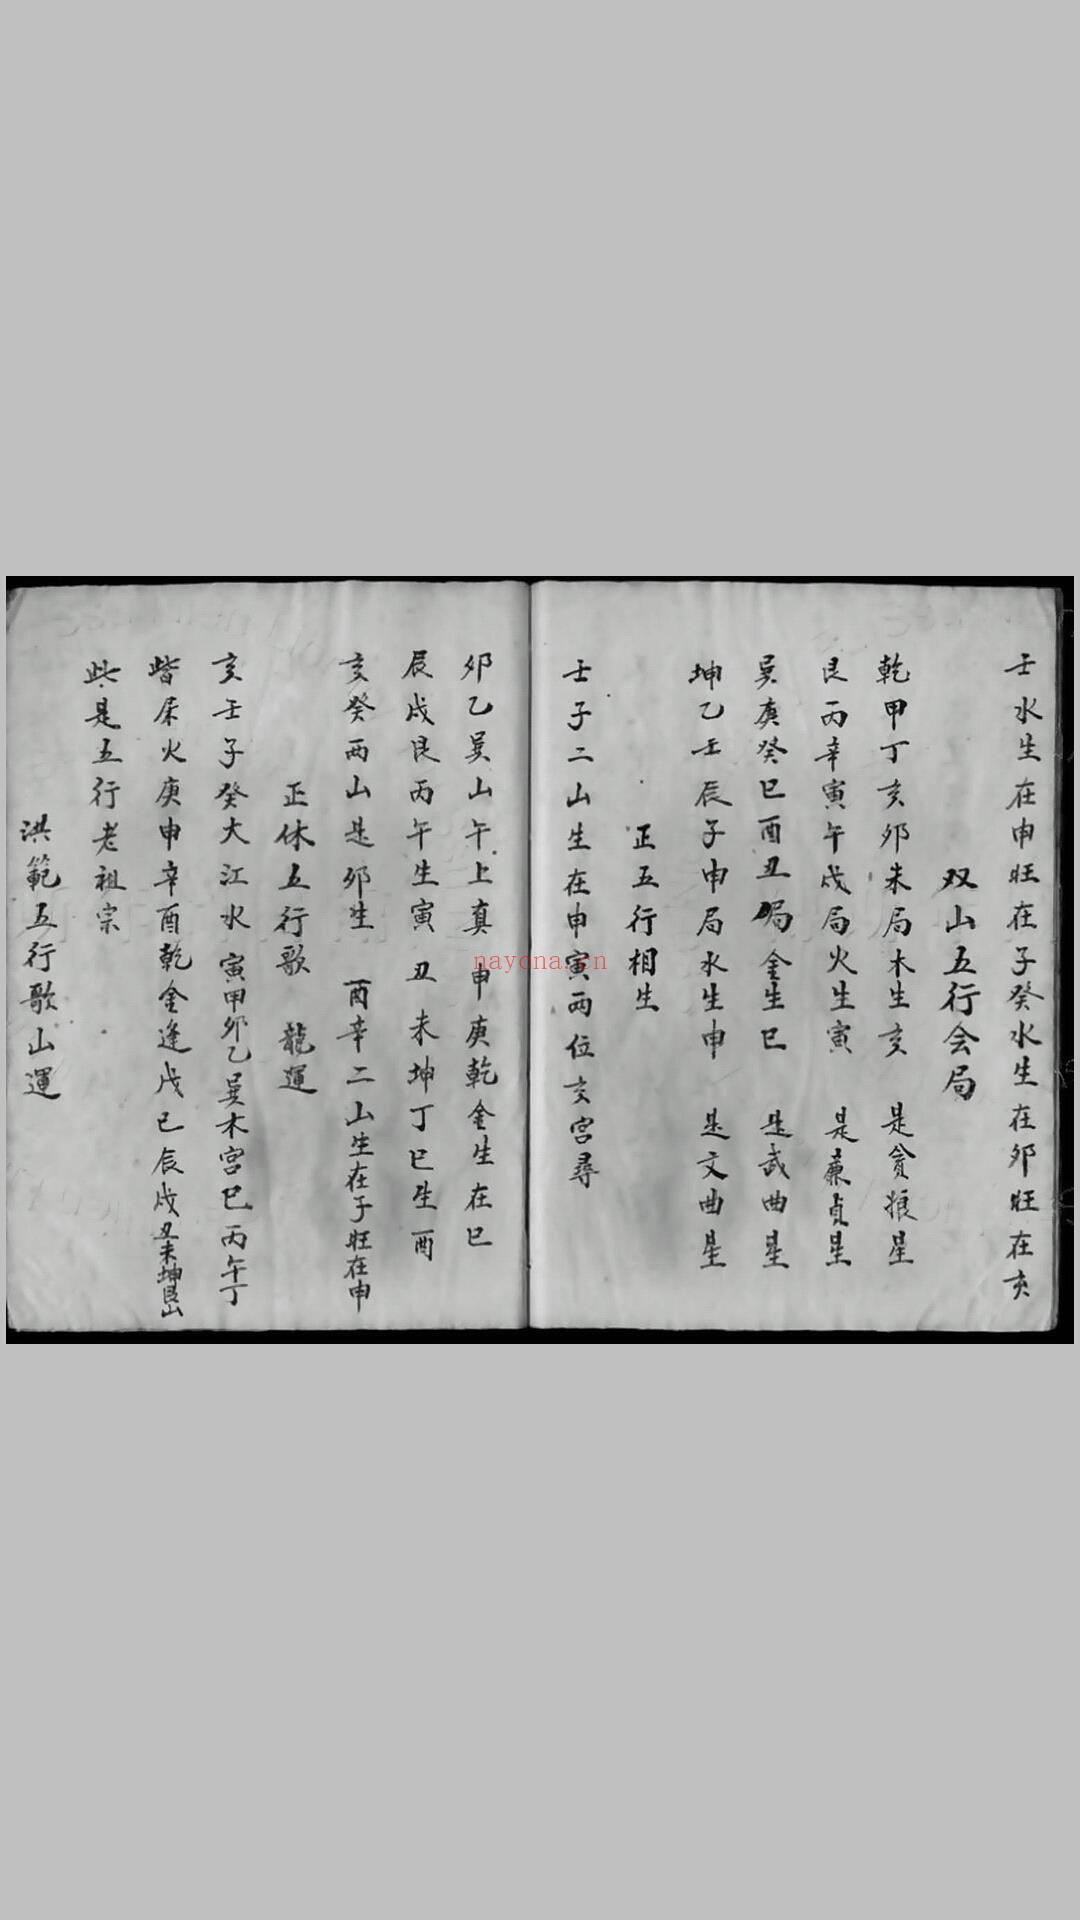 壬水生在申旺在子癸水生在卯旺在亥
双山五行会局
乾甲丁亥卯未局木生亥 是貪狼星
艮丙辛寅午戌局火生寅 是廉貞星
巽庚癸巳酉丑局金生巳 是武曲星
坤乙壬辰子申局水生申 是文曲星
正五行相生
壬子二山生在申寅两位亥宮尋
卯乙巽山午上真 申庚乾金生在巳
辰戌艮丙午生寅 丑未坤丁巳生酉
亥癸两山是卯生 酉辛二山生在子旺在申
正休五行歌 龍運
亥壬子癸大江水 寅甲卯乙巽木宮巳丙午丁
皆屎火庚申辛酉乾金逢戊己辰戌丑未坤艮山
此是五行老祖宗
洪範五行歌山運
nayona.cn